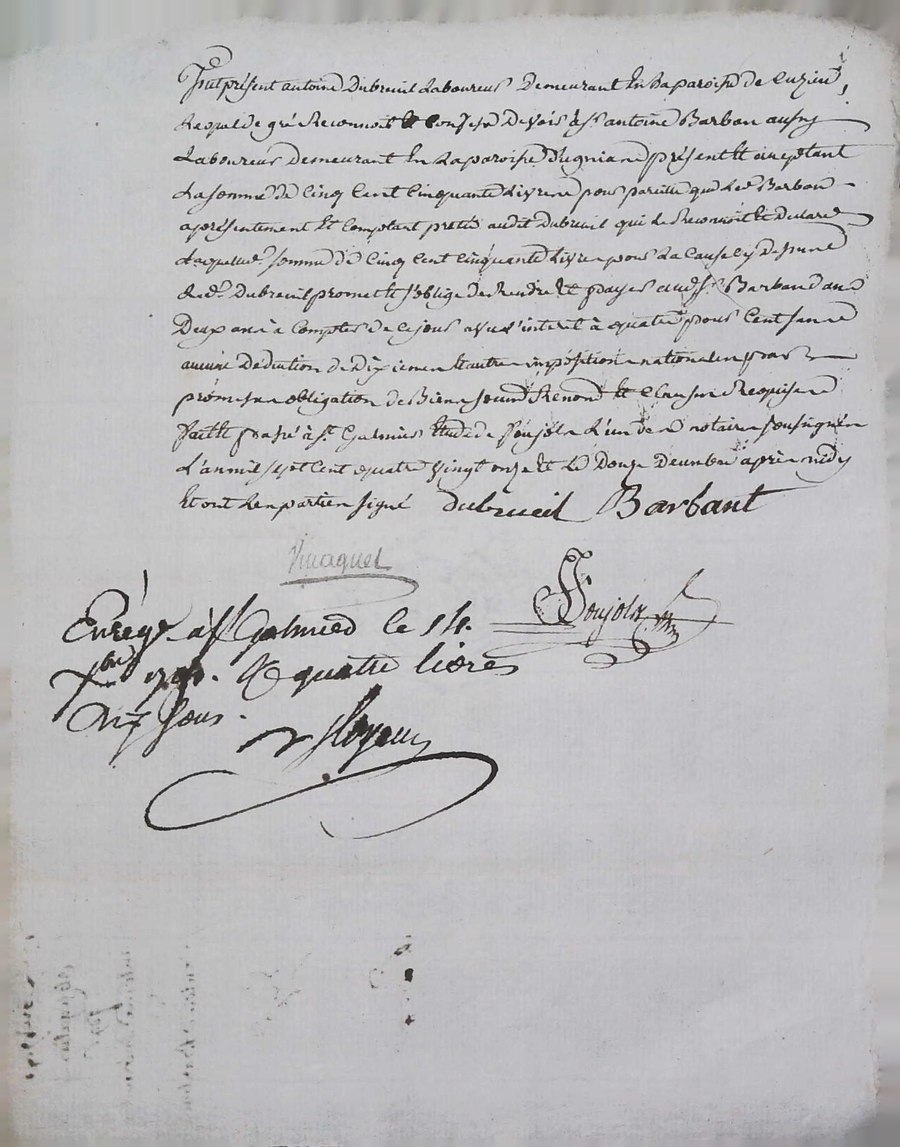 Fut présent antoine Dubreuil Laboureur Demeurant En La paroisse de Cuzieu,
Lequel de gré Reconnoit et Confesse Devoir à sr. antoine Barban aussy
Laboureur Demeurant En La paroisse present Et acceptant
La somme de Cinq Cent Cinquante Livres pour pareille que Led. Barban
a présentement Et Comptant preté audit Dubreuil qui Le Reconnoit Et Declare
Laquelle somme de Cinq Cent Cinquante Livres pour La Cause cy Dessus
Led. Dubreuil promet Et s'oblige de Rendre Et payer audt. sr. Barban dans
Deux ans à Compter de Ce jour avec L'interet à quatre pour Cent sans
aucune Deduction de Dixiemes Et autres impositions nationales par
promesses obligation de Biens soumis Renond. Et Clauses Requises
fait Et passé à st. Galmier Etude de foujols L'un des notaires soussignés
L'an mil sept Cent quatre vingt onze Et Le Douze Decembre après midy
Et ont Les parties signé Dubreuil Barbant
foujols
Enrégé. à st Galmier le 14.
xbre 1791. R quatre livres
Dix sous.